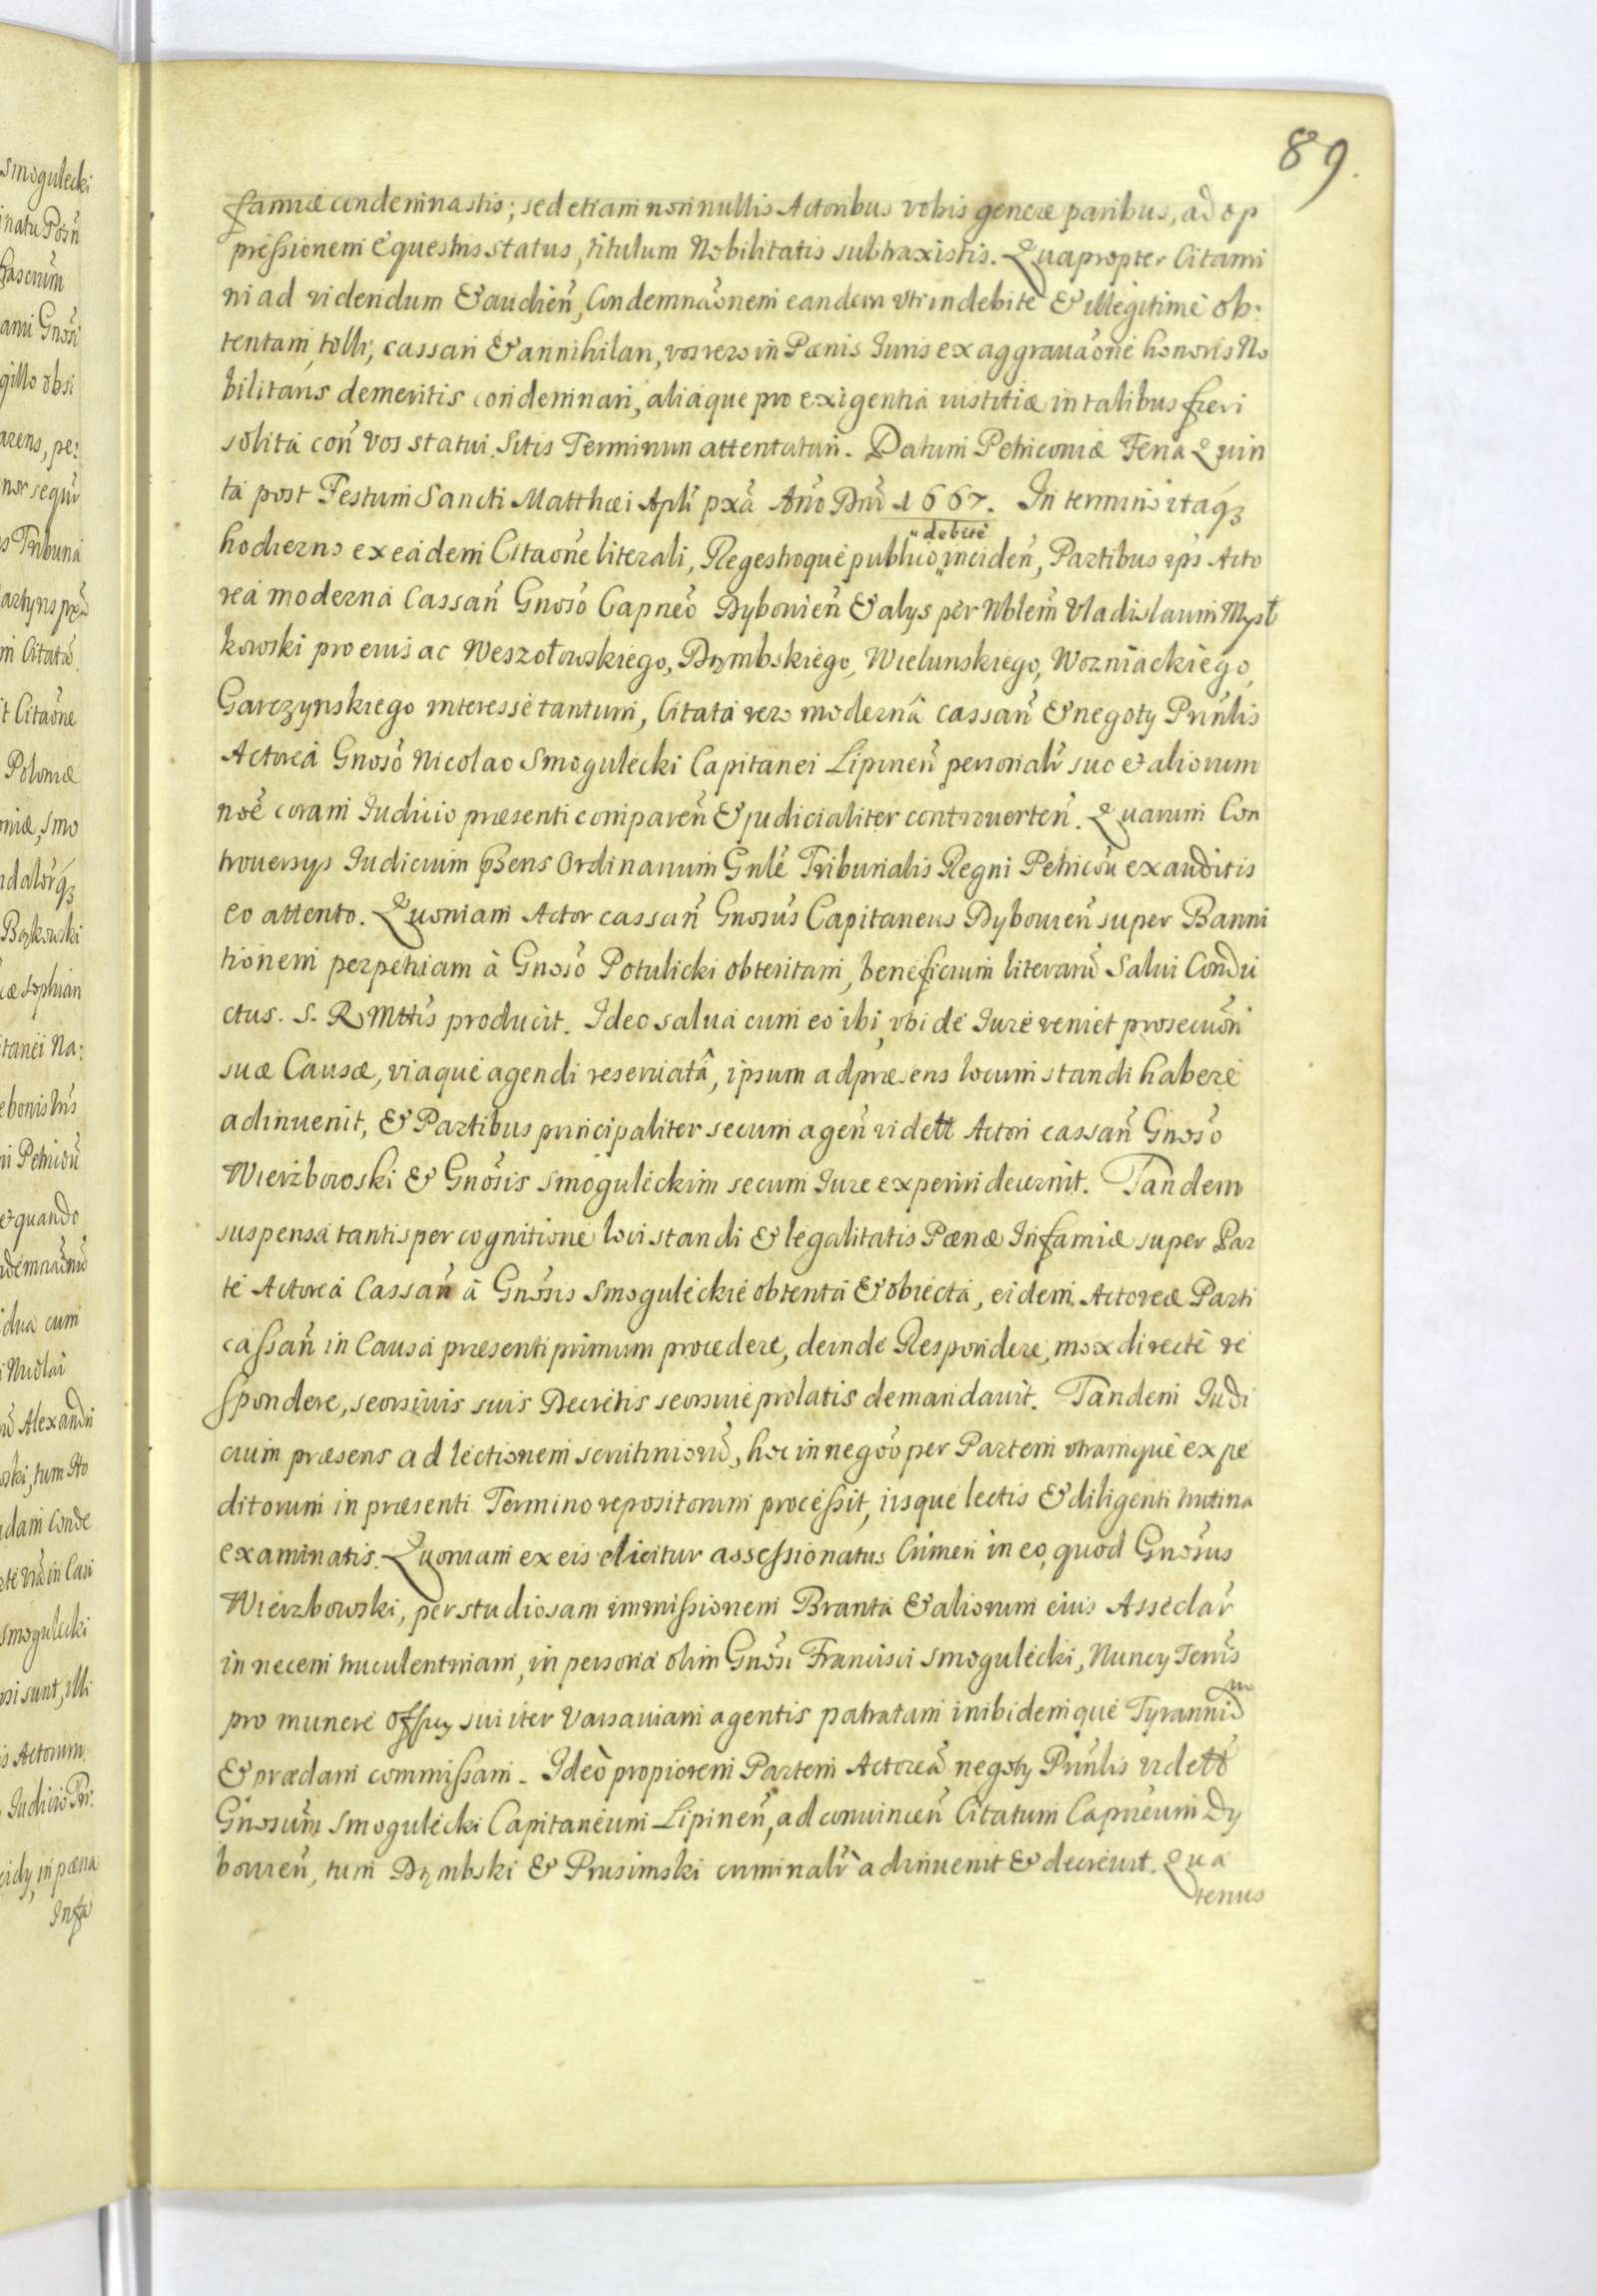 89.
famiæ condemnastis; sed etiam nonnullis Actoribus vobis genere paribus, ad op
pressionem Equestris status, titulum Nobilitatis subtraxistis. Quapropter Citami
ni ad videndum & audien̄, Condemnãonem eandem vti indebite & illegitime ob:
tentam, tolli, cassari & annihilari, vos vero in Pœnis Iuris ex aggrauãone honoris No
bilitaris demeritis condemnari, aliaque pro exigentia iustitiæ in talibus fieri
solita con̄ vos statui. Sitis Terminum attentaturi. Datum Petricouiæ Feria Quin
ta post Festum Sancti Matthæi Apli pxã Año Dni 1667. In termino itaqȝ
debite
hodierno ex eadem Citãone literali, Regestroque publico inciden̄, Partibus ip̄s Acto
rea moderna Cassan̄ Gnoso Capneo Dybouien̄ & alys per Nblem Vladislaum Mysł
kowski pro eius ac Weszołowskiego, Dąmbskiego, Wielunskiego, Wozniackiego,
Garczynskiego interesse tantum, Citata vero modernâ cassan̄ & negoty Prinlis
Actorea Gnoso Nicolao Smogulecki Capitanei Lipinen̄ personalr̄ suo et aliorum
noe coram Iudicio præsenti comparen̄ & judicialiter controuerten̄. Quarum Con
trouersys Iudicium p̄sens Ordinarium Gnle Tribunalis Regni Petricou exauditis
eo attento. Quoniam Actor cassan̄ Gnosus Capitaneus Dybouien̄ super Banni
tionem perpetuam à Gnoso Potulicki obtentam, beneficium literarū Salui Condu
ctus. S. R. Mttis producit. Ideo salua cum eo ibi, vbi de Iure veniet prosecuōni
suæ Causæ, viaque agendi reseruatâ, ipsum ad præsens locum standi habere
adinuenit, & Partibus principaliter secum agen̄ vidett Actori cassan̄ Gnoso
Wierzbowski & Gnosis Smoguleckim secum Iure experiri decernit. Tandem
suspensa tantisper cognitione loci standi & legalitatis Pœnæ Infamiæ super Par
te Actorea Cassan̄ à Gnosis Smoguleckie obtenta & obiecta, eidem Actoreæ Parti
cassan̄ in Causa præsenti primum procedere, deinde Respondere, mox directe re
spondere, seorsiuis suis Decretis seorsiue prolatis demandauit. Tandem Iudi
cium præsens ad lectionem scrutiniorū, hoc in negoo per Partem vtramque expe
ditorum in præsenti Termino repositorum processit, iisque lectis & diligenti trutina
examinatis. Quoniam ex eis elicitur assessionatus Crimen in eo, quod Gnosus
Wierzbowski, per studiosam immissionem Branta & aliorum eius Asseclar̄
in necem truculentiam, in persona olim Gnosi Francisci Smogulecki, Nuncy Terris
pro munere Officy sui iter Varsauiam agentis patratam inibidemque Tyrannid
m
& prædam commissam. Ideò propiorem Partem Actoreã negoty Prinlis vidett
Gnosum Smogulecki Capitaneum Lipinen̄, ad conuincen̄ Citatum Capneum Dy
bouien̄, tum Dąmbski & Prusimski criminalr̄ adinuenit & decreuit. Qua
tenus